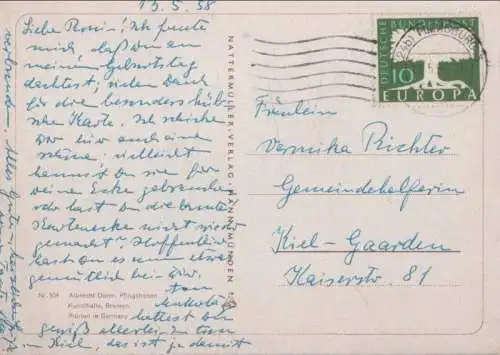 13.5.58
Liebe Roni! Ich freute
mich daß Du an
meinen Geburtstag
dachtest, vielen Dank
für die besonders hüb-
sche Karte. Ich schicke
Dir hier auch eine
schöne; vielleicht
kannst Du sie für
Deine Ecke gebrauchen
oder hast Du die bunte
Kartenecke nicht mehr
gemacht? Hoffentlich
hast Du es nun etwas
gemütlich bei Dir.
hattest Du
gewiß allerlei zu tun
in Kiel, das ist ja damit
verbunden. Alles Gute
Nr. 504 Albrecht Dürer, Pfingstrosen
Kunsthalle, Bremen
Printed in Germany
NATTERMÜLLER-VERLAG HANN.MÜNDEN
DEUTSCHE BUNDESPOST
10
EUROPA
Fräulein
Veronika Richter
Gemeindehelferin
Kiel-Gaarden
Kaiserstr. 81